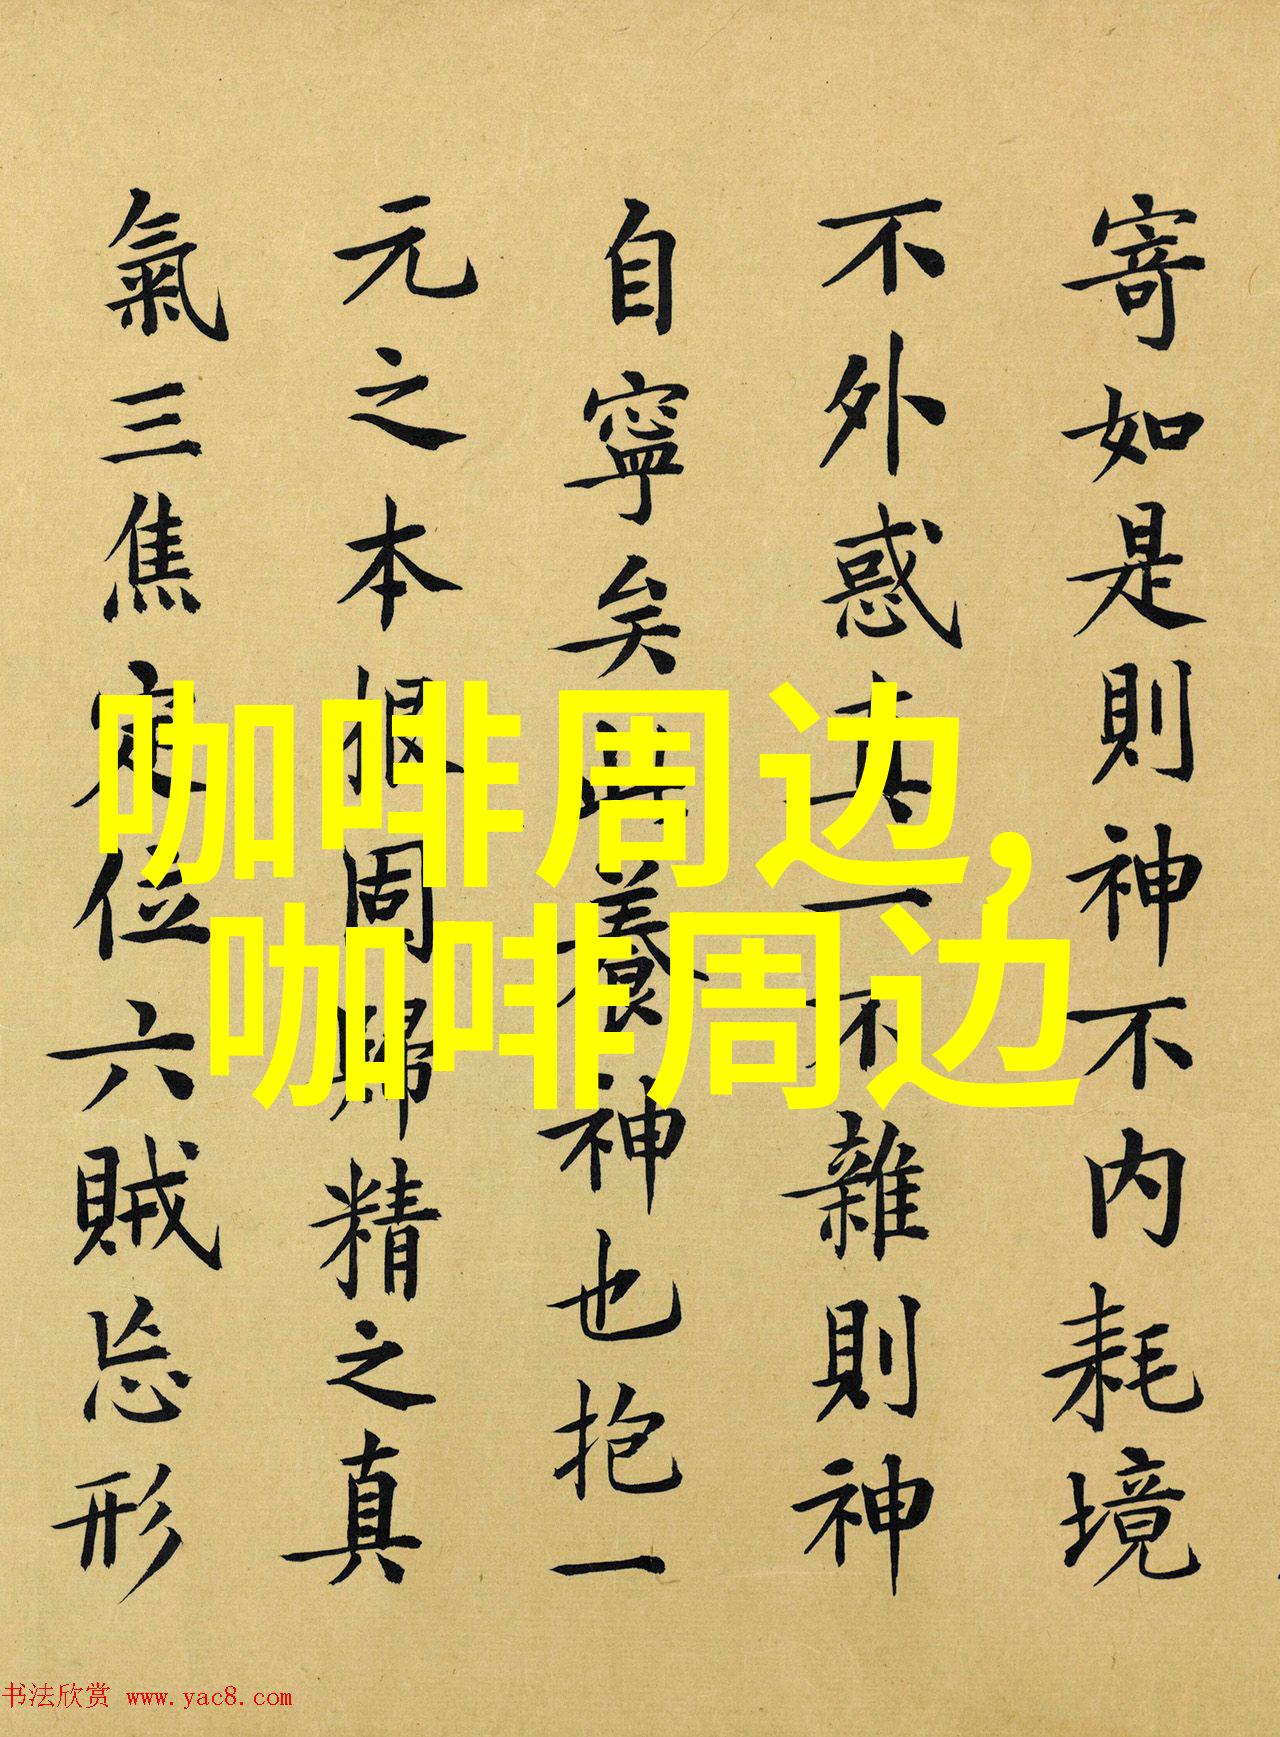 寄如是則神不内耗境
不外惑真一不雜則神
自寧矣此養神也抱一
元之本根固歸精之真
氣三焦定位六賊忘形
咖啡周边,
咖啡周边
书法欣赏 www.yac8.com